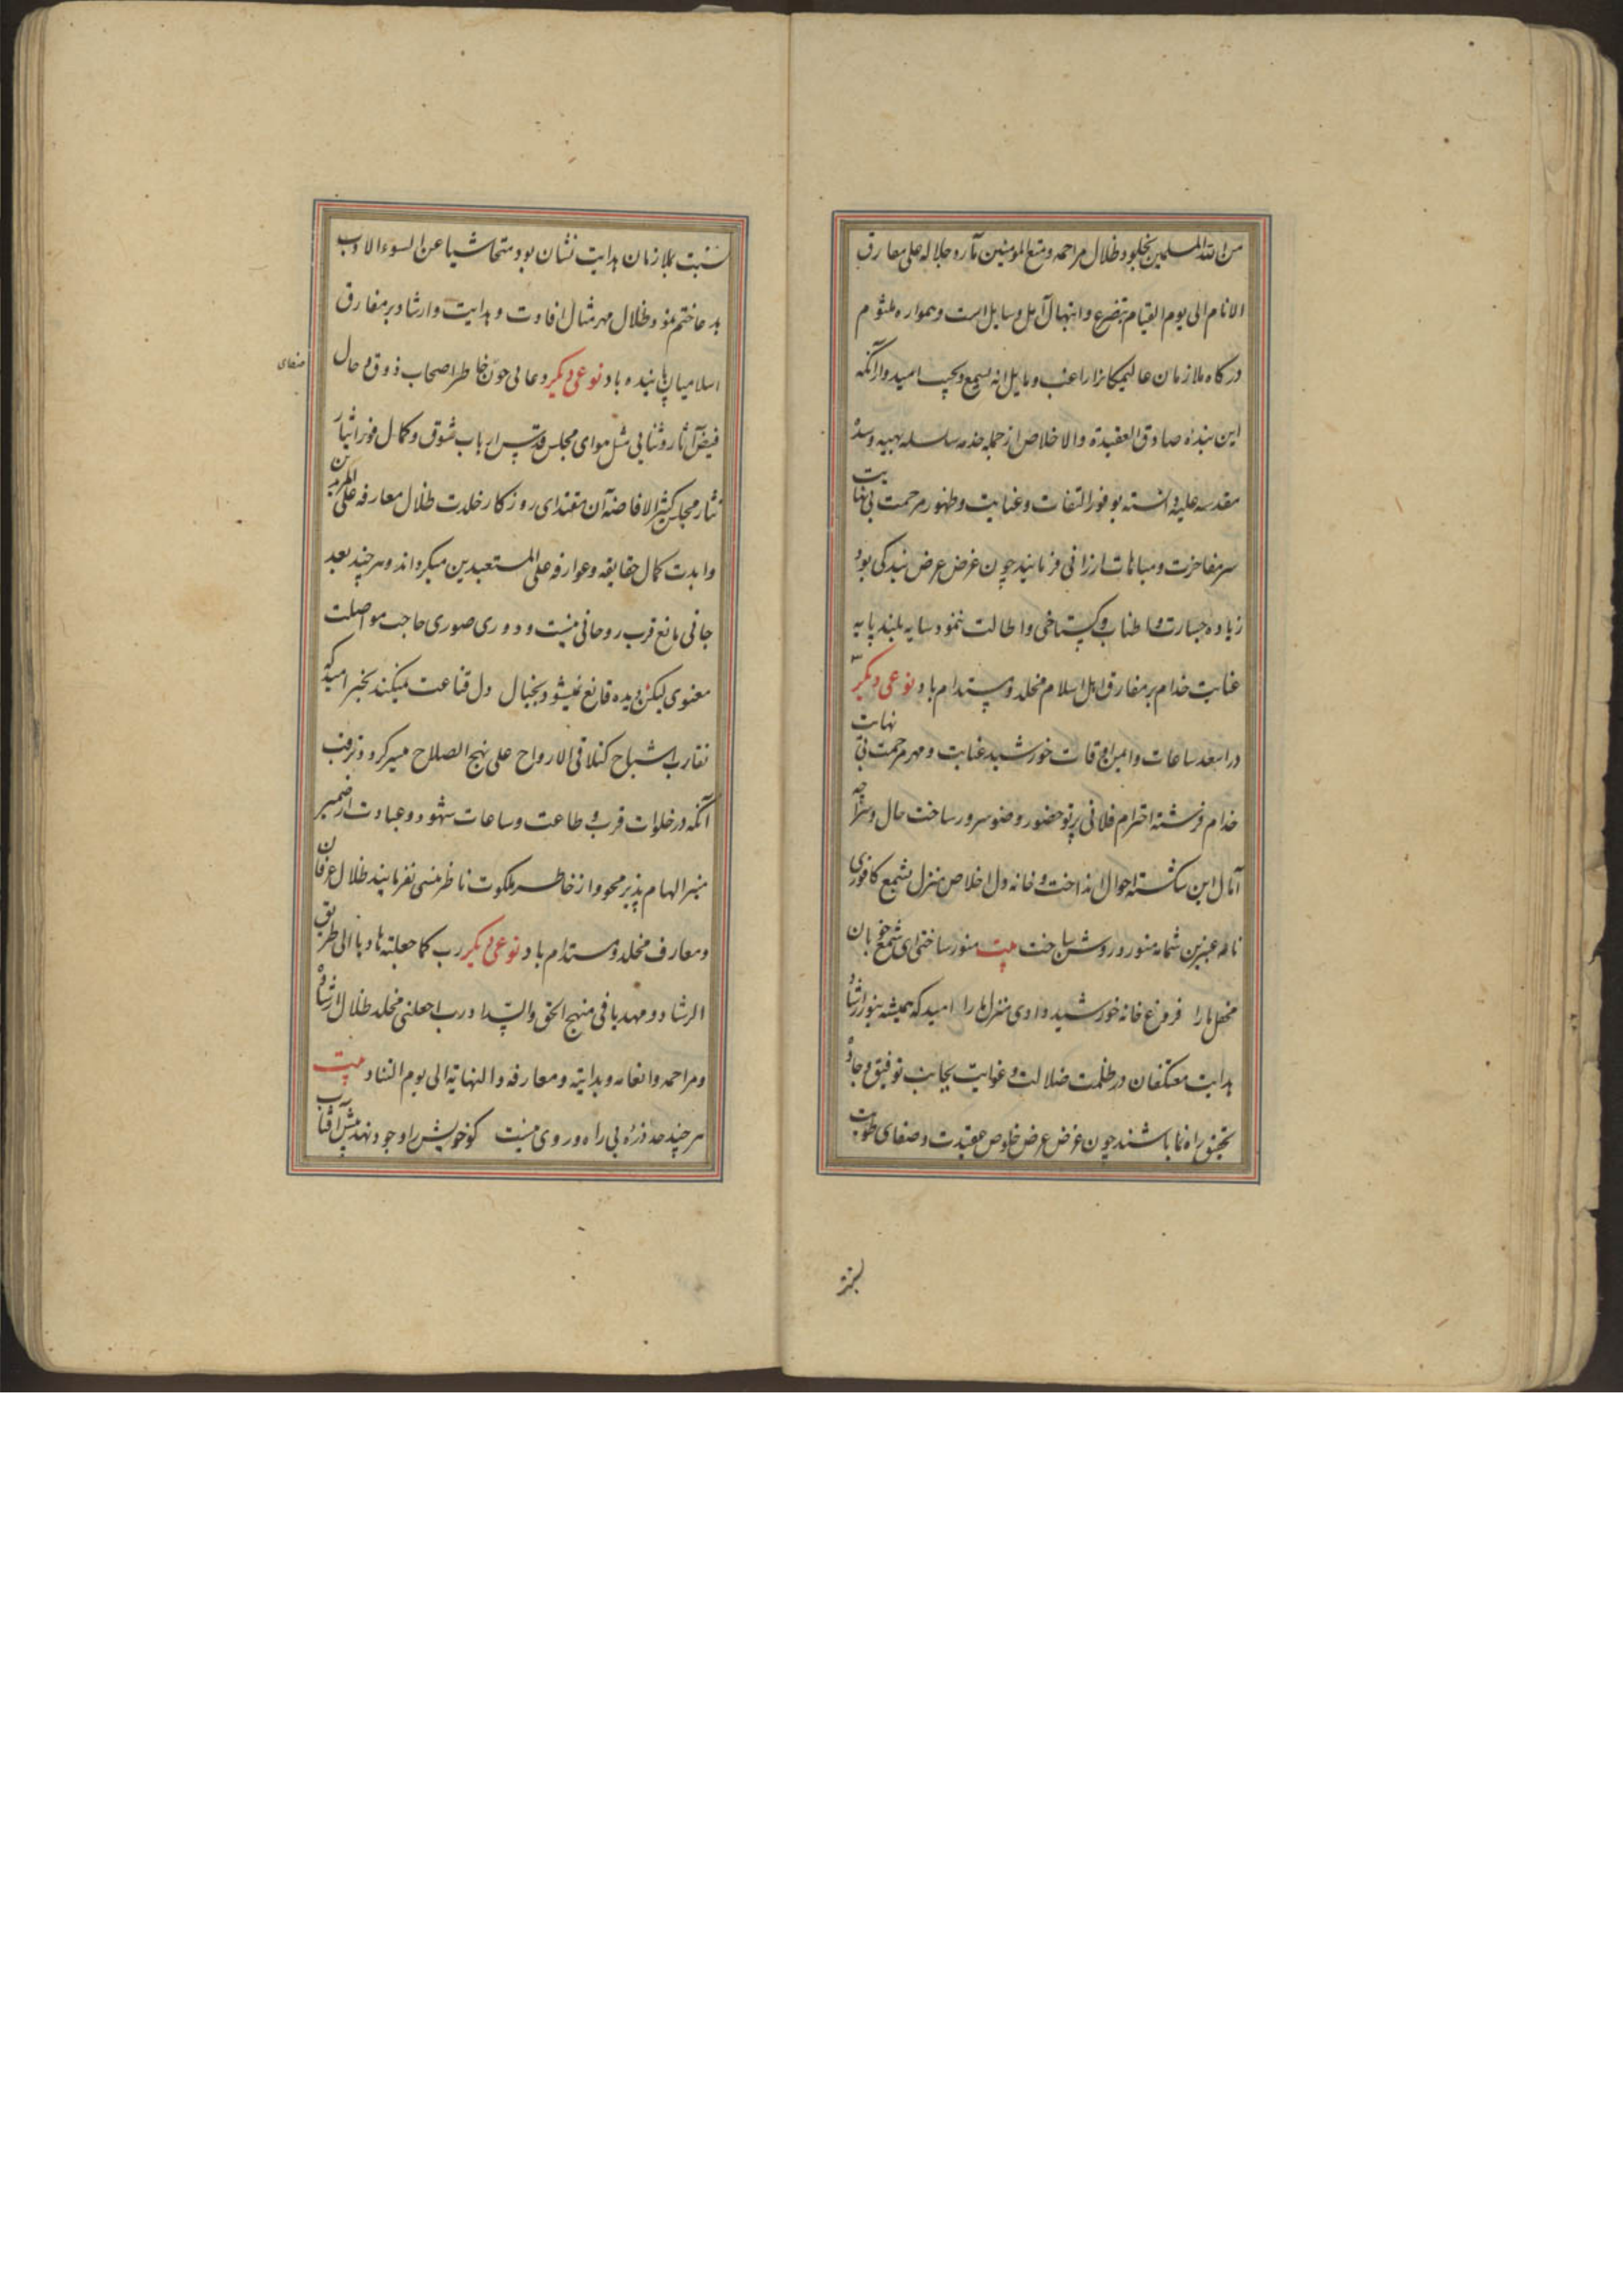 من الله المسلمین بخلود ظلال مراحمه و متع المومنین مآرد جلاله علی مفارق
الانام الی یوم القیام بتضرع و ابتهال آمل و سایل است و همواره ملثوم
درکاه ملازمان عالیمکانرا راغب و مایل انه یسمع و یجیب امیدوار آنکه
این بنده صادق العقیدة والاخلاص از جمله خدمه سلسله بهیه و سده
مقدسه علیه دانسته بوفور التفات و عنایت و ظهور مرحمت بی نهایت
سرمفاخرت و مباهات ارزانی فرمایند چون غرض عرض بندکی بود
زیاده جسارت و اطناب و کستاخی و اطالت ننمود سایه بلند پایه
عنایت خدام بر مفارق اهل اسلام مخلد و مستدام باد نوعی دیکر
در اسعد ساعات و ایمن اوقات خورشید عنایت و مهر مرحمت بی نهایت
خدام فرشته احترام فلانی پرتو حضور و ضوء سرور ساحت حال و سراچه
آمال این شکسته احوال انداخت و خانه دل اخلاص منزل بشمع کافوری
نامه عنبرین شمامه منور و روشن ساخت بیت منور ساختی ای شمع خوبان
محفل ما را فروغ خانه خورشید دادی منزل ما را امید که همیشه بنور ارشاد
هدایت معتکفان در ظلمت ضلالت و غوایت بجانب توفیق و جادۀ
تحقیق راه نما باشند چون غرض عرض خلوص عقیدت و صفای طویت
نسبت بملازمان هدایت نشان بود متحاشیا عن السوء الادب
بدعا ختم نمود ظلال مهر مثال افادت و هدایت و ارشاد بر مفارق
اسلامیان پاینده باد نوعی دیکر دعایی چون خاطر اصحاب ذوق و حال
صفای
فیض آثار و ثنایی مثل هوای مجلس قدس ارباب شوق و کمال فوز ایثار
نثار مجلس کثیر الافاضه آن مقتدای روزکار خلدت ظلال معارفه علی المریدین
و ابدت کمال حقایقه و عوارفه علی المستعبدین میکرداند و هر چند بعد
جانی مانع قرب روحانی نیست و دوری صوری حاجب مواصلت
معنوی لیکن دیده قانع نمیشود بخیال دل قناعت میکند بخبر امید که
تقارب اشباح کتلاقی الارواح علی نهج الصلاح میسر کردد و ترقب
آنکه در خلوات قرب و طاعت و ساعات شهود و عبادت از ضمیر
منیر الهام پذیر محو و از خاطر ملکوت ناظر منسی نفرمایند ظلال عرفان
و معارف مخلد و مستدام باد نوعی دیکر رب کما جعلته هادیا الی طریق
الرشاد و مهدیا فی منهج الحق والسداد رب اجعلنی مخلد ظلال ارشاده
و مراحمه و انعامه و هدایته و معارفه و النهایة الی یوم التناد بیت
هر چند حد ذره بی راه و روی نیست کو خویش را وجود نهد پیش آفتاب